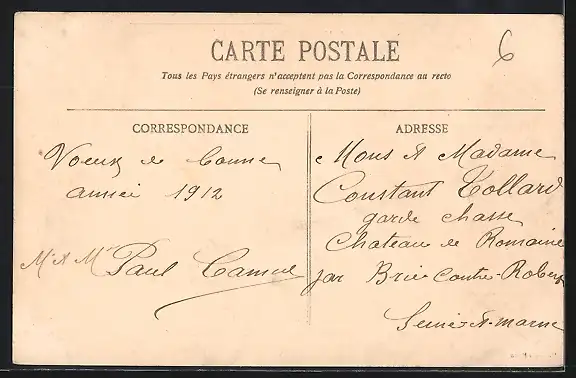 6
CARTE POSTALE
Tous les Pays étrangers n'acceptent pas la Correspondance au recto
(Se renseigner à la Poste)
CORRESPONDANCE
Voeux de Bonne
année 1912
Mr & Me Paul Camus
ADRESSE
Mons & Madame
Constant Tollard
garde chasse
Chateau de Romaine
par Brie Comte-Robert
Seine-&-marne